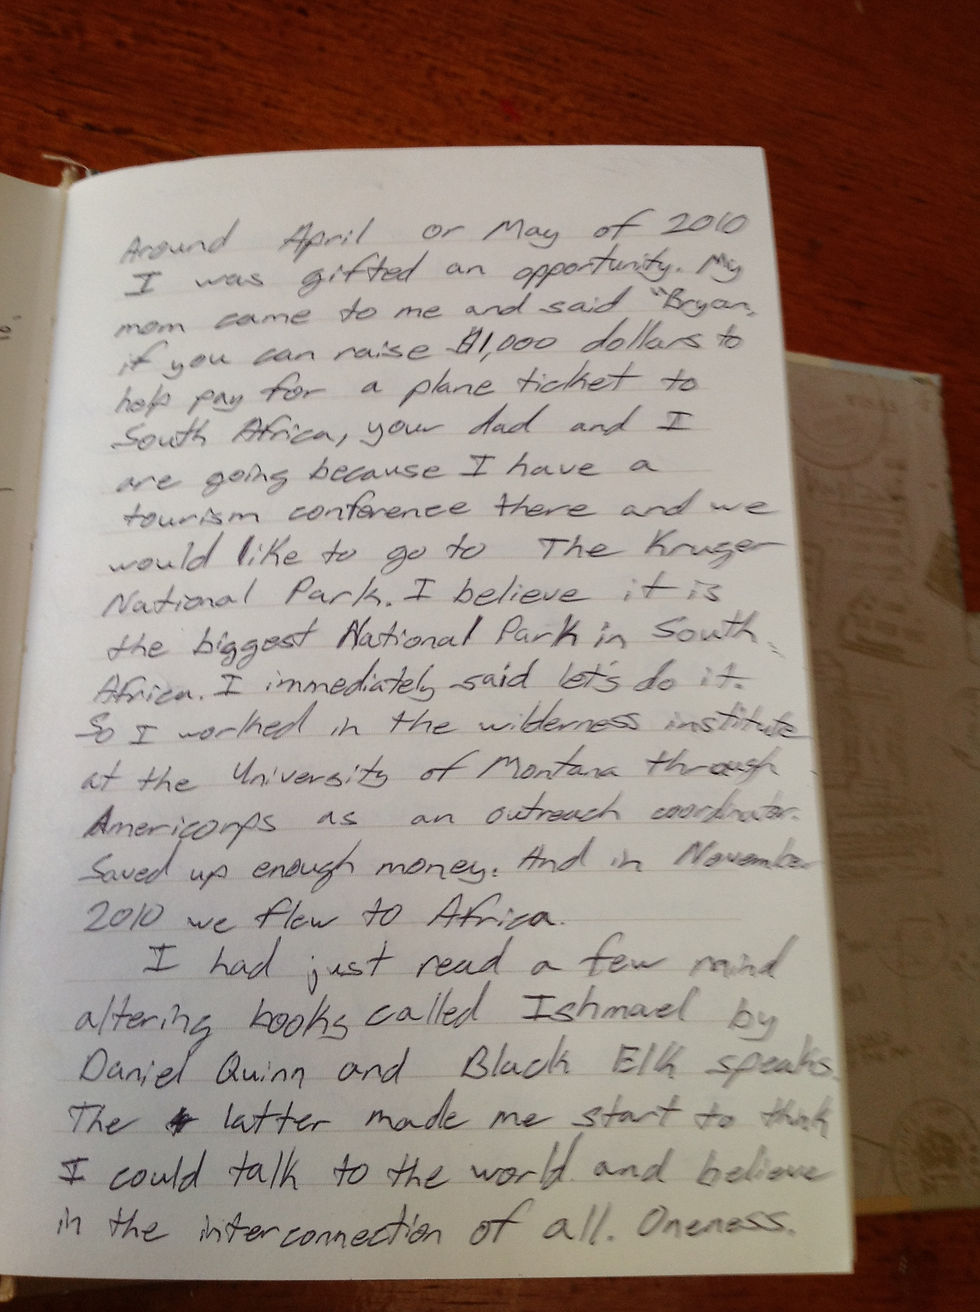 Around April or May of 2010
I was gifted an opportunity. My
mom came to me and said "Bryan,
if you can raise $1,000 dollars to
help pay for a plane ticket to
South Africa, your dad and I
are going because I have a
tourism conference there and we
would like to go to The Kruger
National Park. I believe it is
the biggest National Park in South
Africa. I immediately said let's do it.
So I worked in the wilderness institute
at the University of Montana through
Americorps as an outreach coordinator.
Saved up enough money. And in November
2010 we flew to Africa.
I had just read a few mind
altering books called Ishmael by
Daniel Quinn and Black Elk speaks.
The latter made me start to think
I could talk to the world and believe
in the interconnection of all. Oneness.